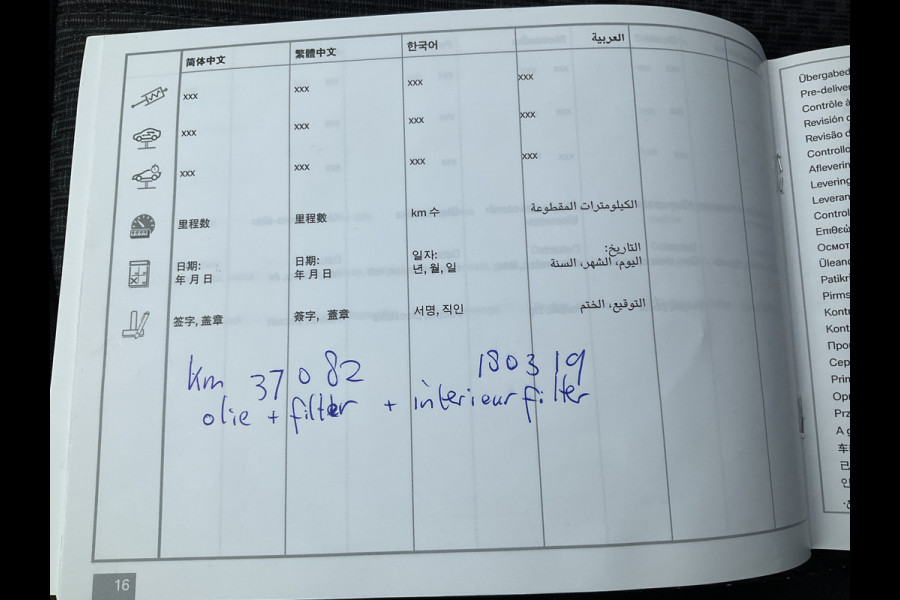 简体中文 繁體中文 한국어 العربية
xxx xxx xxx xxx
xxx xxx xxx xxx
xxx xxx xxx xxx
里程数 里程數 km 수 الكيلومترات المقطوعة
日期: 日期: 일자: التاريخ:
年 月 日 年 月 日 년, 월, 일 اليوم، الشهر، السنة
签字, 盖章 簽字, 蓋章 서명, 직인 التوقيع، الختم
km 37082 180319
olie + filter + interieur filter
16
Übergabed
Pre-deliver
Contrôle à
Revisión d
Revisão d
Controllo
Aflevering
Levering
Leveran
Control
Επιθεώ
Осмот
Üleand
Patikri
Pirms
Kont
Kont
Про
Сер
Prin
Opr
Prz
A g
车
已
인